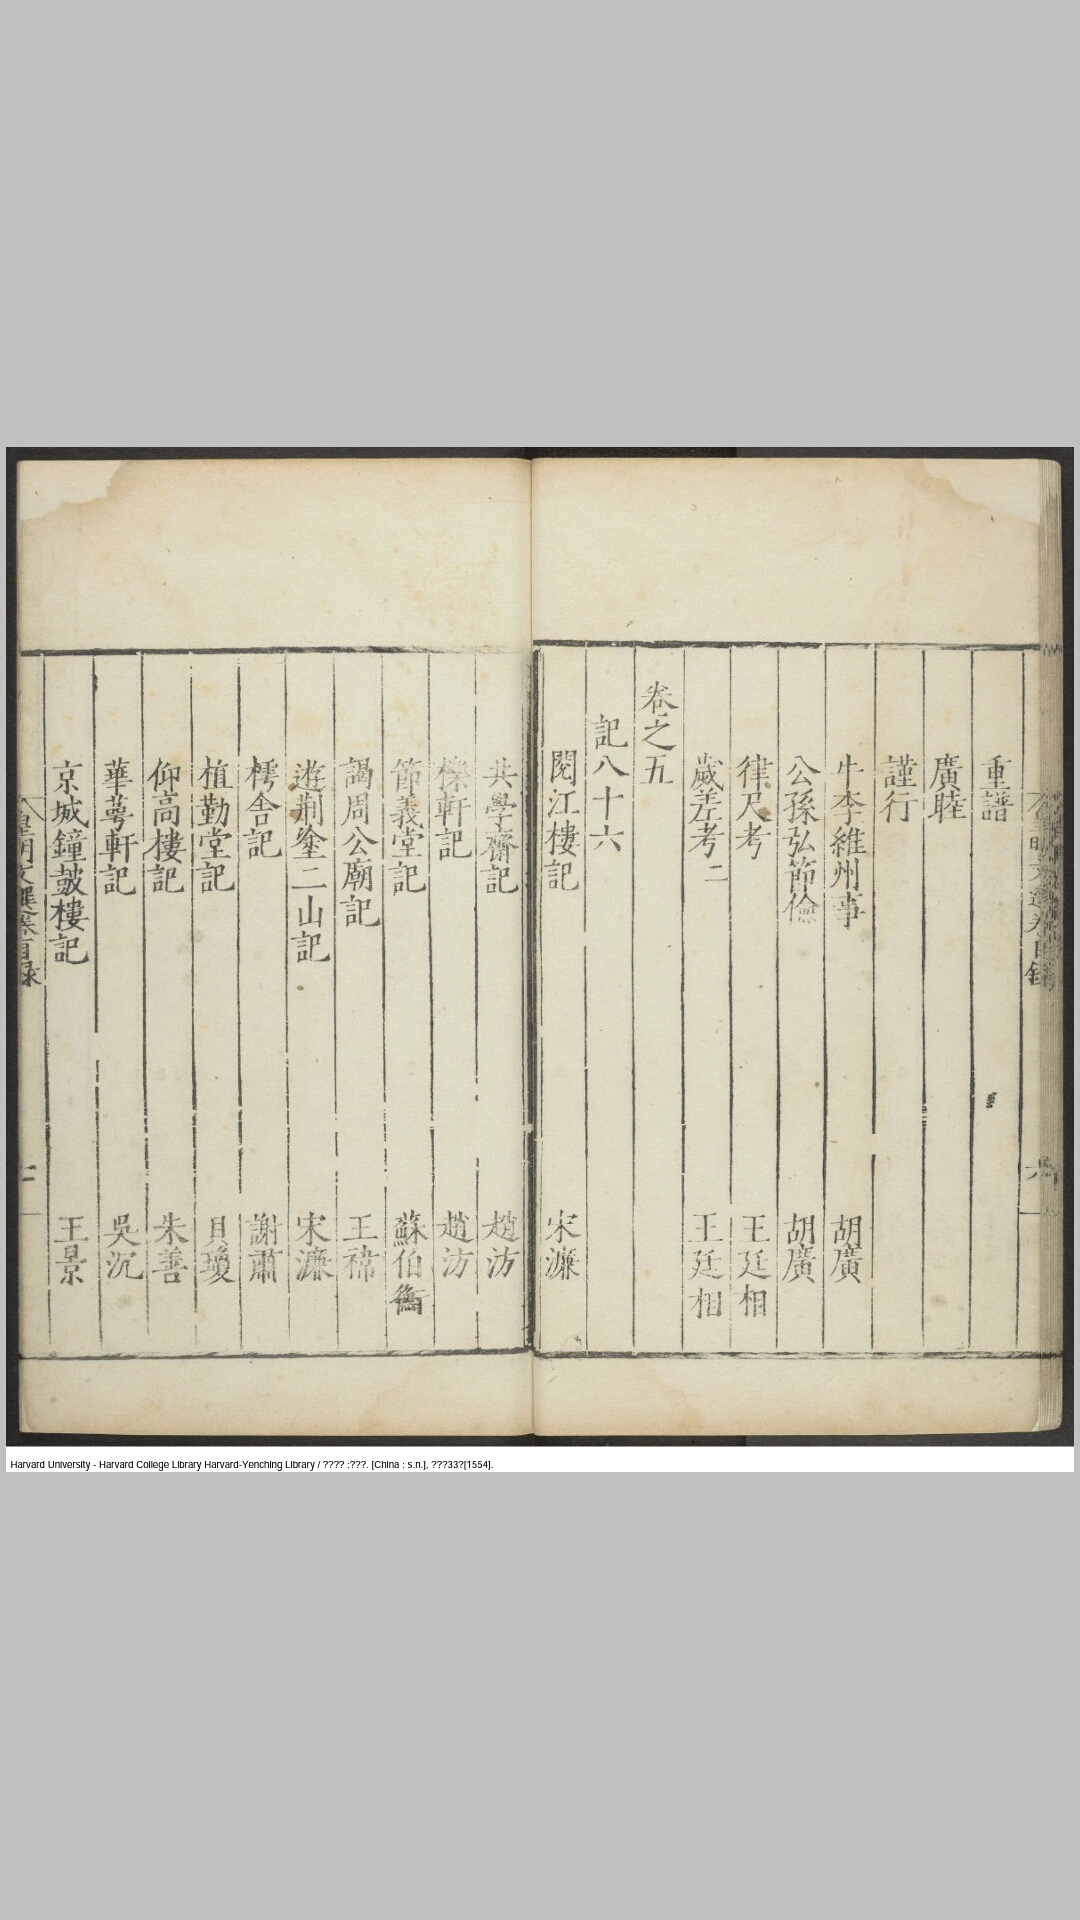 重譜
廣睦
謹行
牛李維州事 胡廣
公孫弘節儉 胡廣
律尺考 王廷相
歲差考二 王廷相
卷之五
記八十六
閱江樓記 宋濂
共學齋記 趙汸
櫟軒記 趙汸
節義堂記 蘇伯衡
謁周公廟記 王褘
遊荆塗二山記 宋濂
樗舍記 謝肅
植勤堂記 貝瓊
仰高樓記 朱善
華萼軒記 吳沉
京城鐘鼓樓記 王景
Harvard University - Harvard College Library Harvard-Yenching Library / ???? :???. [China : s.n.], ???33?[1554].